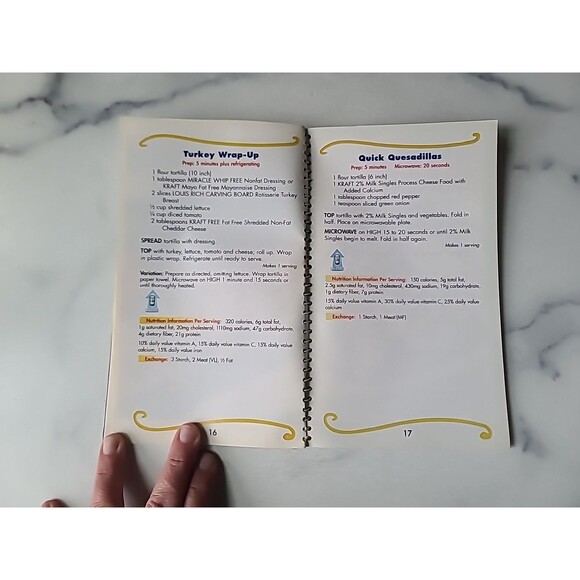 Turkey Wrap-Up
Prep: 5 minutes plus refrigerating
1 flour tortilla (10 inch)
1 tablespoon MIRACLE WHIP FREE Nonfat Dressing or
KRAFT Mayo Fat Free Mayonnaise Dressing
2 slices LOUIS RICH CARVING BOARD Rotisserie Turkey
Breast
½ cup shredded lettuce
¼ cup diced tomato
2 tablespoons KRAFT FREE Fat Free Shredded Non-Fat
Cheddar Cheese
SPREAD tortilla with dressing.
TOP with turkey, lettuce, tomato and cheese; roll up. Wrap
in plastic wrap. Refrigerate until ready to serve.
Makes 1 serving
Variation: Prepare as directed, omitting lettuce. Wrap tortilla in
paper towel. Microwave on HIGH 1 minute and 15 seconds or
until thoroughly heated.
Nutrition Information Per Serving: 320 calories, 6g total fat,
1g saturated fat, 20mg cholesterol, 1110mg sodium, 47g carbohydrate,
4g dietary fiber, 21g protein
10% daily value vitamin A, 15% daily value vitamin C, 15% daily value
calcium, 15% daily value iron
Exchange: 3 Starch, 2 Meat (VL), ½ Fat
16
Quick Quesadillas
Prep: 5 minutes Microwave: 20 seconds
1 flour tortilla (6 inch)
1 KRAFT 2% Milk Singles Process Cheese Food with
Added Calcium
1 tablespoon chopped red pepper
1 teaspoon sliced green onion
TOP tortilla with 2% Milk Singles and vegetables. Fold in
half. Place on microwavable plate.
MICROWAVE on HIGH 15 to 20 seconds or until 2% Milk
Singles begin to melt. Fold in half again.
Makes 1 serving
Nutrition Information Per Serving: 150 calories, 5g total fat,
2.5g saturated fat, 10mg cholesterol, 430mg sodium, 19g carbohydrate,
1g dietary fiber, 7g protein
15% daily value vitamin A, 30% daily value vitamin C, 25% daily value
calcium
Exchange: 1 Starch, 1 Meat (MF)
17